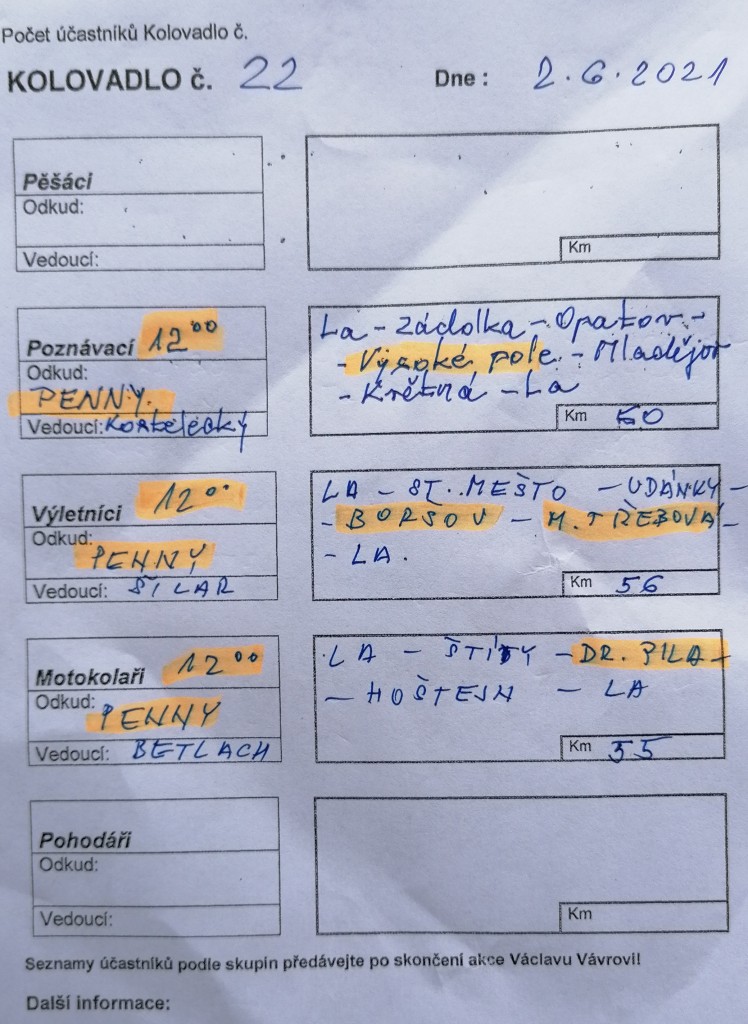 Počet účastníků Kolovadlo č.
KOLOVADLO č. 22 Dne : 2.6.2021
Pěšáci
Odkud:
Vedoucí:
Km
Poznávací 12⁰⁰
Odkud:
PENNY.
Vedoucí: Korbelecký
La - Zádolka - Opatov -
- Vysoké pole - Mladějov
- Křetná - La
Km 60
Výletníci 12⁰⁰
Odkud:
PENNY
Vedoucí: ŠILAR
LA - ST. MĚSTO - UDÁNKY -
- BORŠOV - M. TŘEBOVÁ -
- LA.
Km 56
Motokolaři 12⁰⁰
Odkud:
PENNY
Vedoucí: BETLACH
LA - ŠTÍTY - DR. PILA -
- HOŠTEJN - LA
Km 55
Pohodáři
Odkud:
Vedoucí:
Km
Seznamy účastníků podle skupin předávejte po skončení akce Václavu Vávrovi!
Další informace: